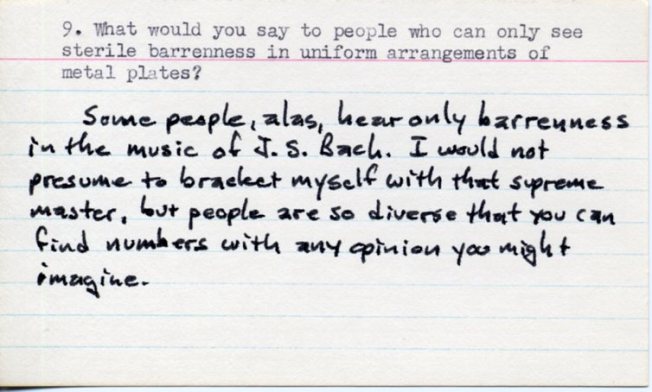 9. What would you say to people who can only see
sterile barrenness in uniform arrangements of
metal plates?
Some people, alas, hear only barrenness
in the music of J. S. Bach. I would not
presume to bracket myself with that supreme
master, but people are so diverse that you can
find numbers with any opinion you might
imagine.